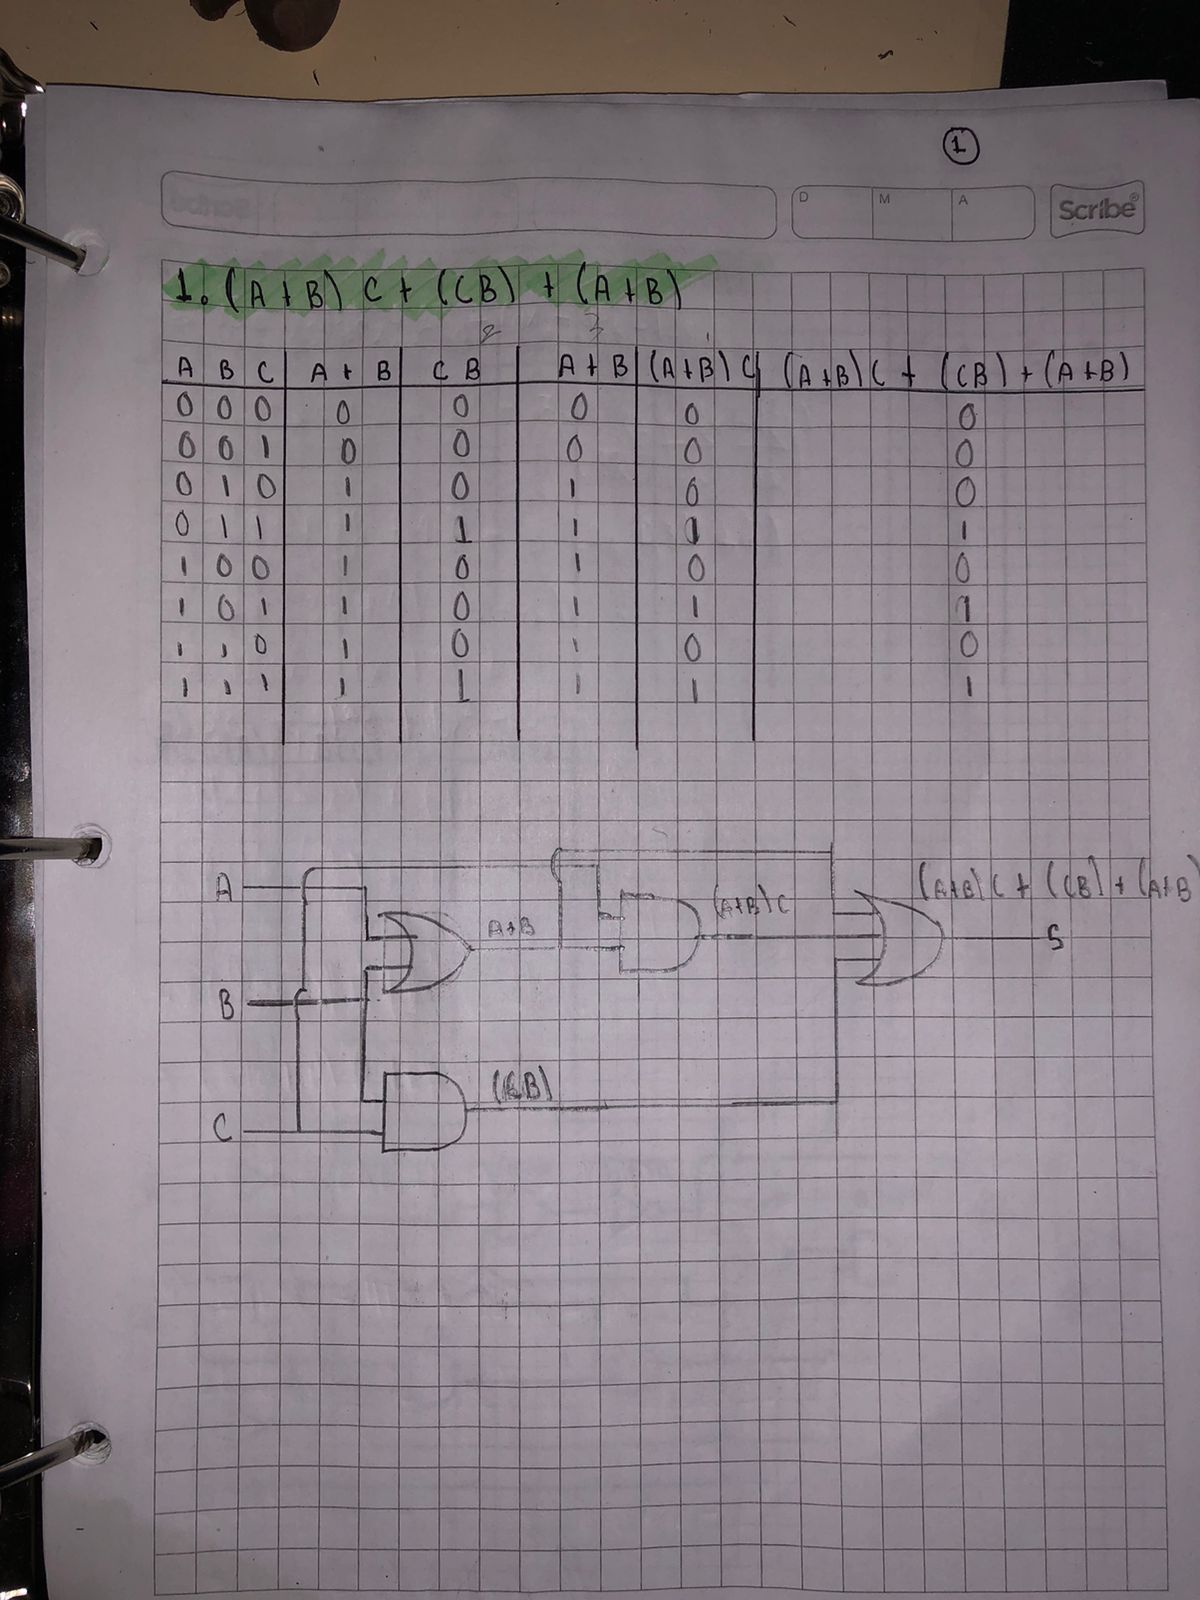 1
D M A Scribe®
1. (A+B) C + (CB) + (A+B)
2 3
A B C A + B C B A + B (A+B) C (A+B) C + (CB) + (A+B)
0 0 0 0 0 0 0 0
0 0 1 0 0 0 0 0
0 1 0 1 0 1 0 0
0 1 1 1 1 1 1 1
1 0 0 1 0 1 0 0
1 0 1 1 0 1 1 1
1 1 0 1 0 1 0 0
1 1 1 1 1 1 1 1
A
A+B
(A+B) C
(A+B) C + (CB) + (A+B)
S
B
(CB)
C